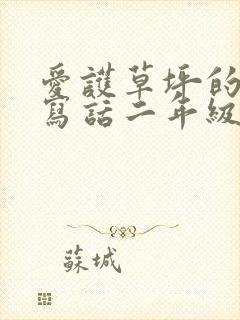 愛護草坪的
寫話二年級
蘇城